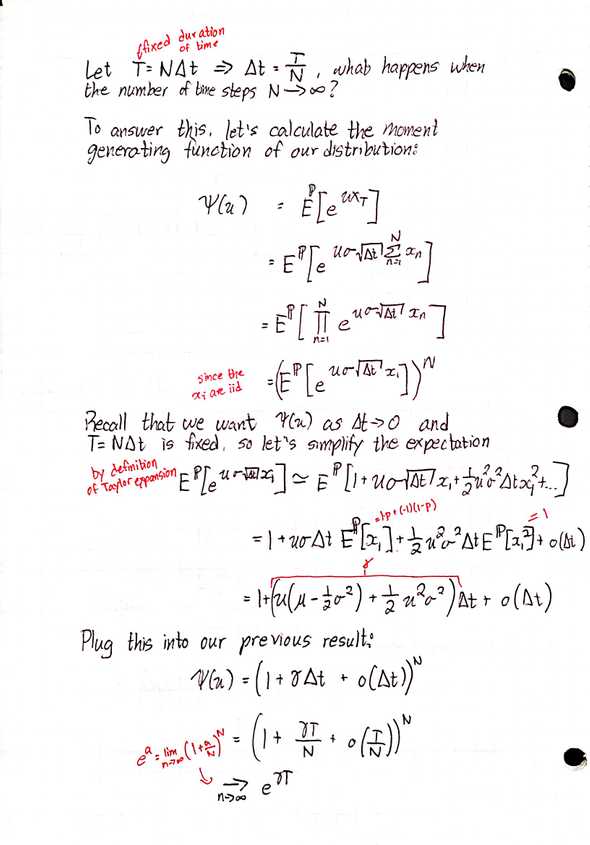 (fixed duration of time
Let T = NΔt ⇒ Δt = T/N, what happens when
the number of time steps N → ∞?
To answer this, let's calculate the moment
generating function of our distribution:
Ψ(u) = E^ℙ[e^{u x_T}]
= E^ℙ[e^{uσ√Δt Σ_{n=1}^{N} x_n}]
= E^ℙ[∏_{n=1}^{N} e^{uσ√Δt x_n}]
since the x_i are iid
= (E^ℙ[e^{uσ√Δt x_1}])^N
Recall that we want Ψ(u) as Δt → 0 and
T = NΔt is fixed, so let's simplify the expectation
by definition of Taylor expansion
E^ℙ[e^{uσ√Δt x_1}] ≃ E^ℙ[1 + uσ√Δt x_1 + ½u²σ²Δt x_1² + ...]
= 1·p + (-1)(1-p)
= 1
= 1 + uσΔt E^ℙ[x_1] + ½u²σ²Δt E^ℙ[x_1²] + o(Δt)
γ
= 1 + (u(μ - ½σ²) + ½u²σ²)Δt + o(Δt)
Plug this into our previous result:
Ψ(u) = (1 + γΔt + o(Δt))^N
= (1 + γT/N + o(T/N))^N
e^a = lim_{n→∞} (1 + a/N)^N
→_{n→∞} e^{γT}